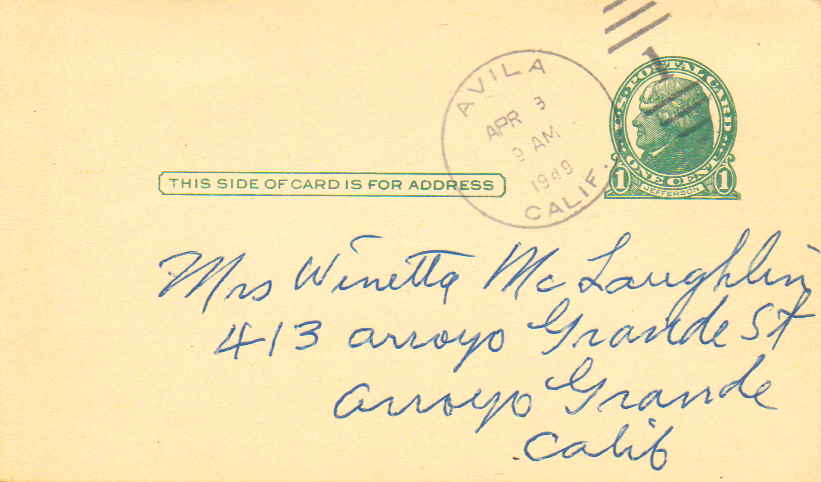 AVILA
APR 3
9 AM
1949
CALIF.
1
U.S. POSTAL CARD
ONE CENT
1 JEFFERSON 1
THIS SIDE OF CARD IS FOR ADDRESS
Mrs Winetta McLaughlin
413 Arroyo Grande St
Arroyo Grande
Calif